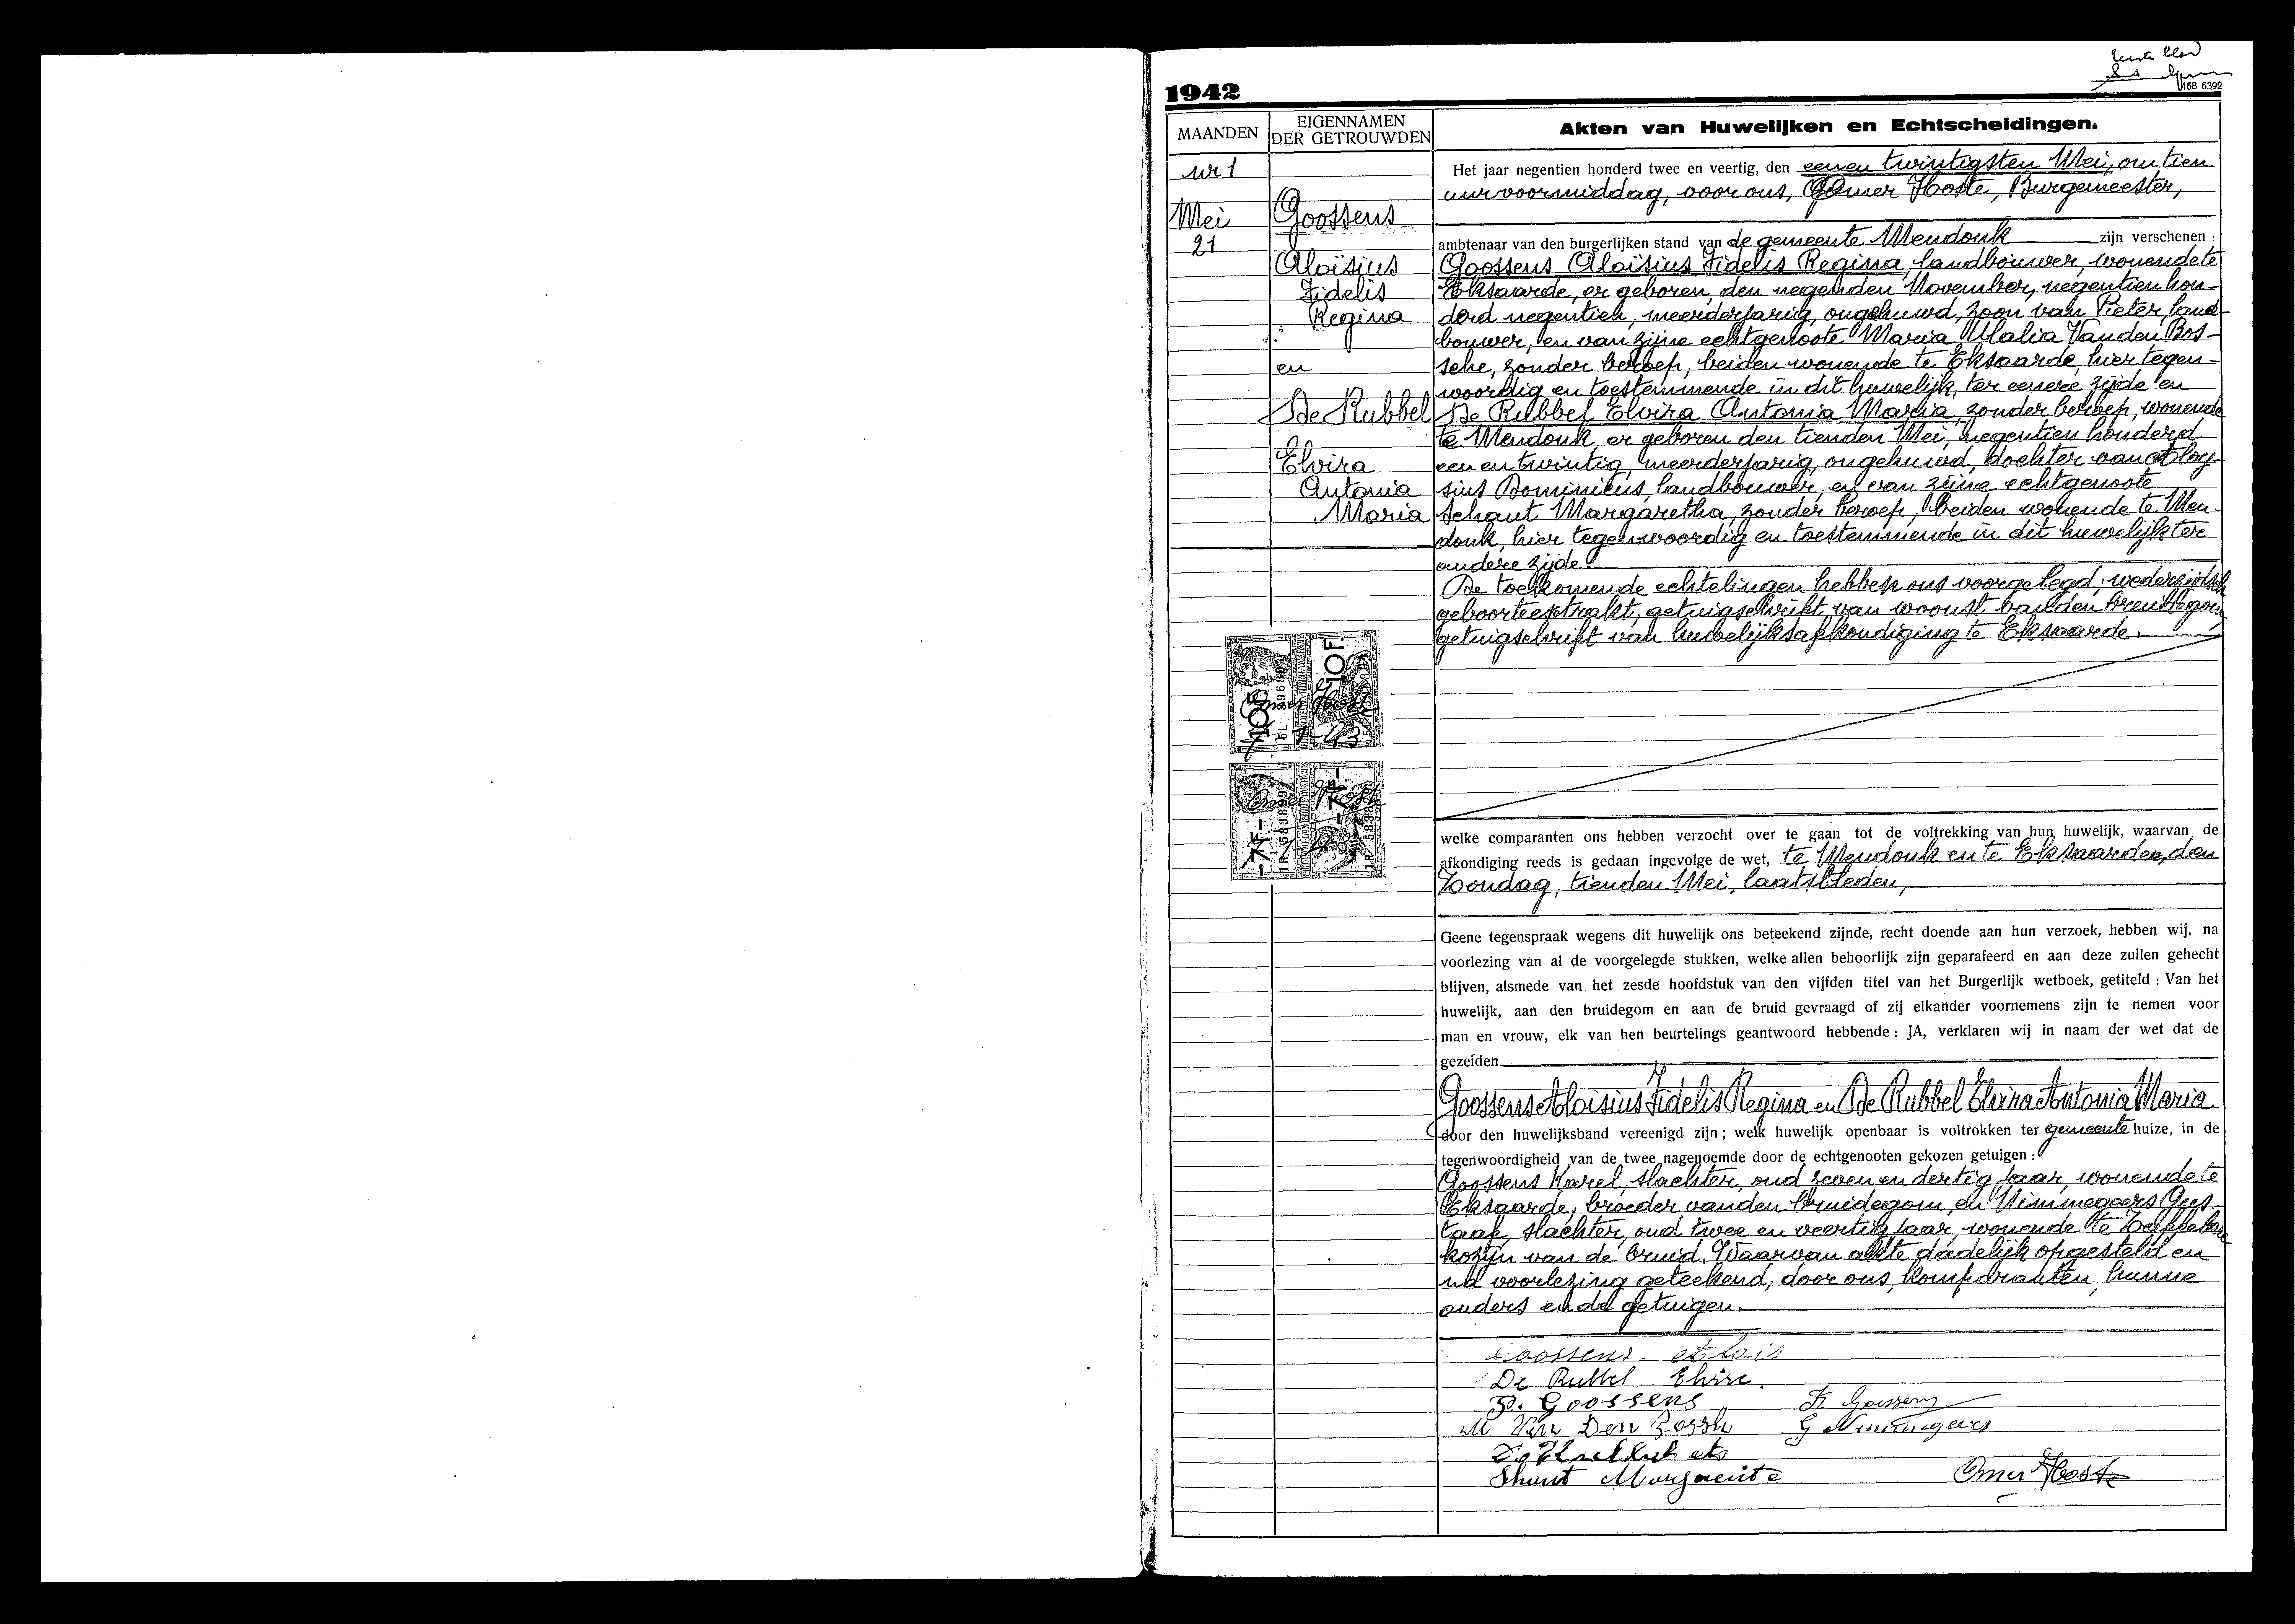 Eerste blad
168 6392
1942
MAANDEN
EIGENNAMEN
DER GETROUWDEN
Akten van Huwelijken en Echtscheidingen.
nr 1
Mei
21
Goossens
Aloïsius
Fidelis
Regina
en
De Rubbel
Elvira
Antonia
Maria
Het jaar negentien honderd twee en veertig, den eenen twintigsten Mei, om tien
uur voormiddag, voor ons, Omer Hoste, Burgemeester,
ambtenaar van den burgerlijken stand van de gemeente Mendonk zijn verschenen :
Goossens Aloïsius Fidelis Regina, landbouwer, wonende te
Eksaarde, er geboren, den negenden November, negentien hon-
derd negentien, meerderjarig, ongehuwd, zoon van Pieter, land-
bouwer, en van zijne echtgenoote Maria Ulalia Van den Bos-
sche, zonder beroep, beiden wonende te Eksaarde, hier tegen-
woordig en toestemmende in dit huwelijk, ter eenere zijde en
De Rubbel Elvira Antonia Maria, zonder beroep, wonende
te Mendonk, er geboren den tienden Mei, negentien honderd
een en twintig, meerderjarig, ongehuwd, dochter van Aloy-
sius Dominicus, landbouwer, en van zijne echtgenoote
Schaut Margaretha, zonder beroep, beiden wonende te Men-
donk, hier tegenwoordig en toestemmende in dit huwelijk ter
andere zijde.
De toekomende echtelingen hebben ons voorgelegd: wederzijdsch
geboorteextrakt, getuigschrift van woonst van den bruidegom,
getuigschrift van huwelijksafkondiging te Eksaarde.
10F.
10F
Omer Hoste
7-1-43
-7F.-
Omer Hoste
welke comparanten ons hebben verzocht over te gaan tot de voltrekking van hun huwelijk, waarvan de
afkondiging reeds is gedaan ingevolge de wet, te Mendonk en te Eksaarde, den
Zondag, tienden Mei, laatstleden,
Geene tegenspraak wegens dit huwelijk ons beteekend zijnde, recht doende aan hun verzoek, hebben wij, na
voorlezing van al de voorgelegde stukken, welke allen behoorlijk zijn geparafeerd en aan deze zullen gehecht
blijven, alsmede van het zesde hoofdstuk van den vijfden titel van het Burgerlijk wetboek, getiteld : Van het
huwelijk, aan den bruidegom en aan de bruid gevraagd of zij elkander voornemens zijn te nemen voor
man en vrouw, elk van hen beurtelings geantwoord hebbende : JA, verklaren wij in naam der wet dat de
gezeiden
Goossens Aloisius Fidelis Regina en De Rubbel Elvira Antonia Maria
door den huwelijksband vereenigd zijn ; welk huwelijk openbaar is voltrokken ter gemeente huize, in de
tegenwoordigheid van de twee nagenoemde door de echtgenooten gekozen getuigen :
Goossens Karel, slachter, oud zeven en dertig jaar, wonende te
Eksaarde, broeder van den bruidegom, en Nimmegeers Gus-
taaf, slachter, oud twee en veertig jaar, wonende te Zaffelare
kozijn van de bruid. Waarvan akte dadelijk opgesteld en
na voorlezing geteekend, door ons, komparanten, hunne
ouders en de getuigen.
Goossens Alois
De Rubbel Elvire.
P. Goossens
K Goossens
M Van Den Bossh
G Nimmegeers
Shaut Marguerite
Omer Hoste